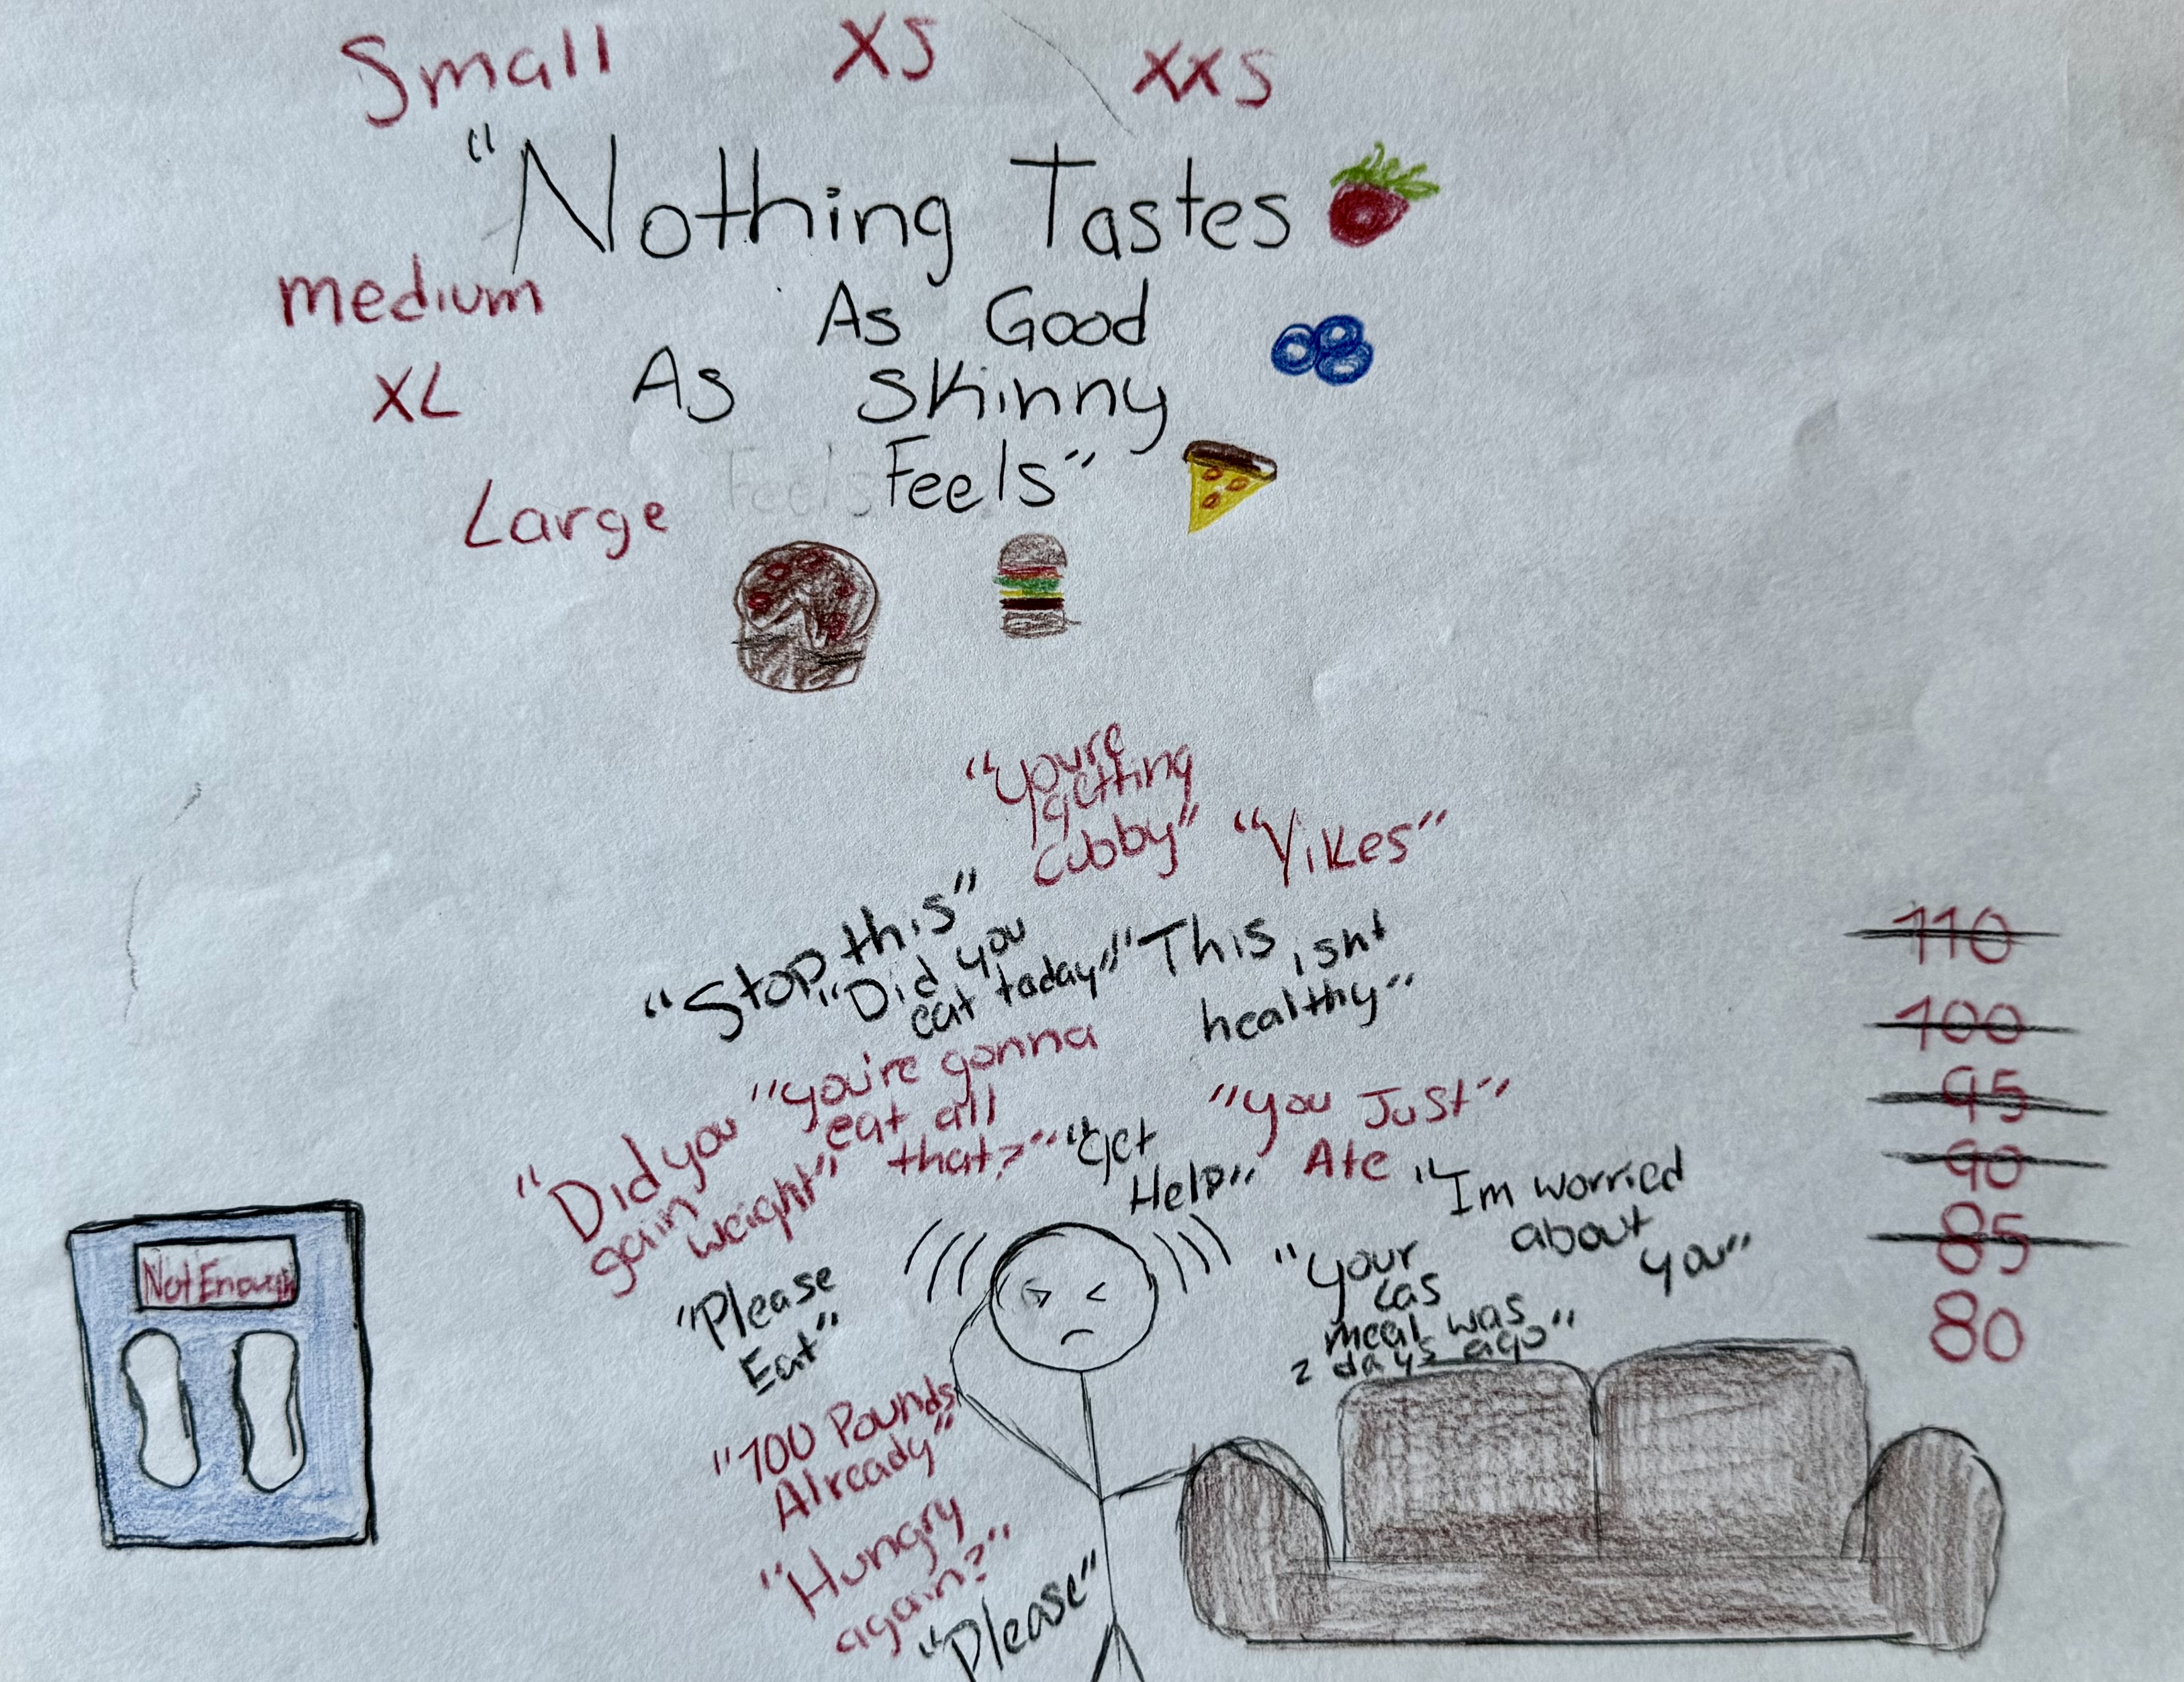 Small XS XXS
"Nothing Tastes
medium
As Good
XL
As Skinny
Feels Feels"
Large
"You're
getting
cubby"
"Yikes"
"Stop this"
"Did you
eat today"
"This isnt
healthy"
"Did you
gain
weight"
"you're gonna
eat all
that?"
"Get
Help"
"You Just"
Ate
"Im worried
about
you"
"Please
Eat"
"your
Las
meal was
2 days ago"
"100 Pounds
Already"
"Hungry
again?"
"Please"
Not Enough
110
100
95
90
85
80